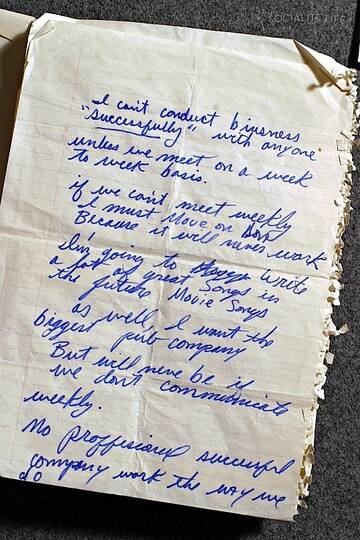 SOCIALITE LIFE
I can't conduct biusness
"successfully" with anyone
unless we meet on a week
to week basis.
if we can't meet weekly
I must Move on
Because it will never work
I'm going to write
a lot of great Songs in
the future Movie Songs
as well, I want the
biggest pub company
But will never be if
we dont communicate
weekly.
No proffesional successful
company work the way we
do